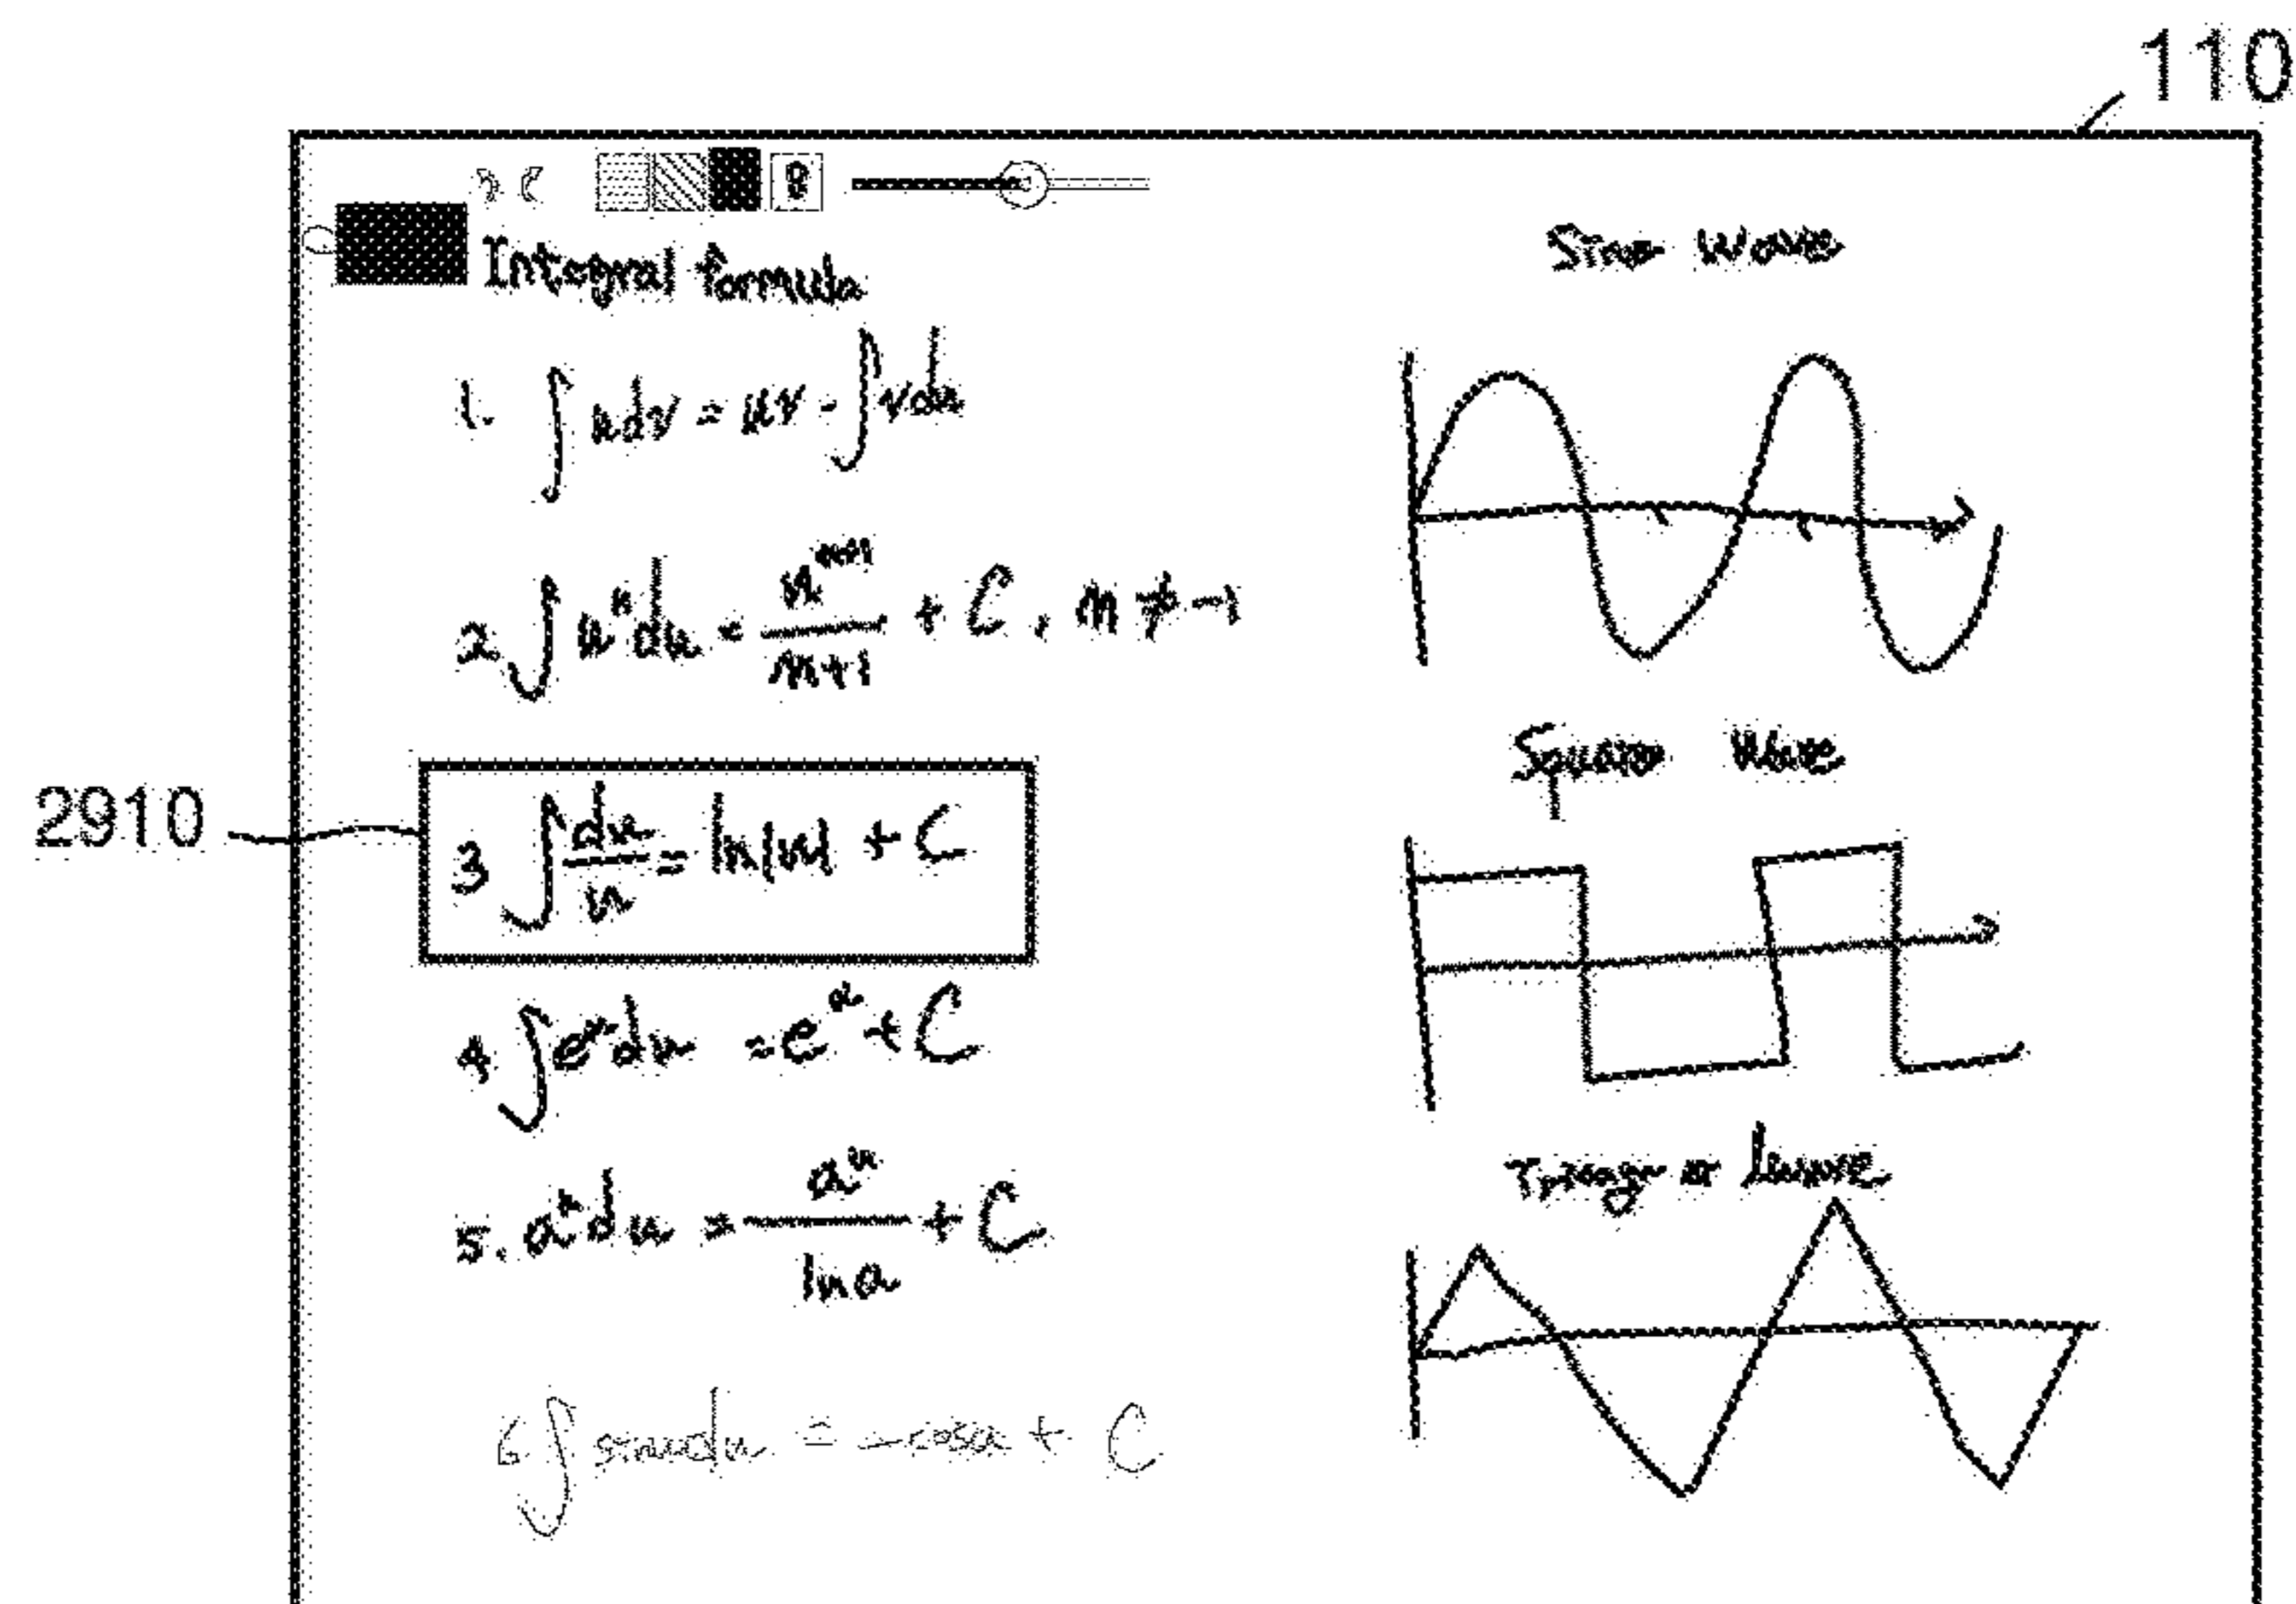 110
Integral formula
1. ∫udv = uv - ∫vdu
2. ∫uⁿdu = uⁿ⁺¹/n+1 + C, n ≠ -1
2910
3 ∫du/u = ln|u| + C
4. ∫eᵘdu = eᵘ + C
5. aᵘdu = aᵘ/ln a + C
6 ∫sinudu = -cosu + C
Sine Wave
Square Wave